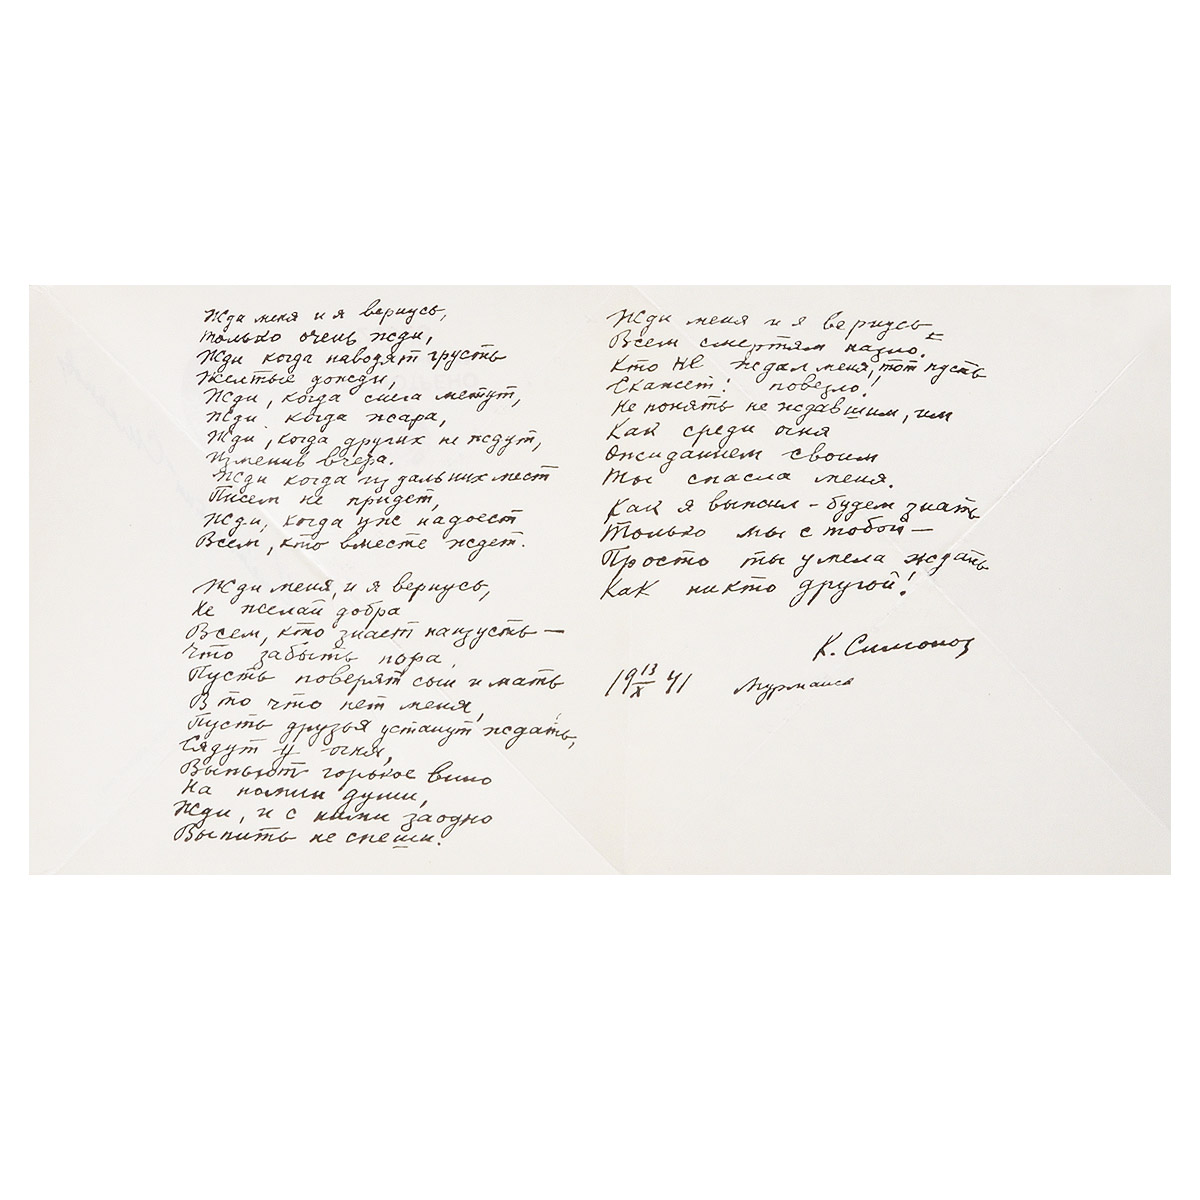 Жди меня и я вернусь,
только очень жди,
Жди когда наводят грусть
Желтые дожди,
Жди, когда снега метут,
Жди когда жара,
Жди, когда других не ждут,
Изменив вчера.
Жди когда из дальних мест
Писем не придет,
Жди, когда уже надоест
Всем, кто вместе ждет.
Жди меня, и я вернусь,
Не желай добра
Всем, кто знает наизусть —
Что забыть пора,
Пусть поверят сын и мать
В то что нет меня,
Пусть друзья устанут ждать,
Сядут у огня,
Выпьют горькое вино
На помин души,
Жди, и с ними заодно
Выпить не спеши.
Жди меня и я вернусь
Всем смертям назло.
Кто не ждал меня, тот пусть
Скажет: повезло!
Не понять не ждавшим, им
Как среди огня
Ожиданием своим
Ты спасла меня.
Как я выжил – будем знать
Только мы с тобой —
Просто ты умела ждать
Как никто другой!
К. Симонов
19 13/X 41 Мурманск